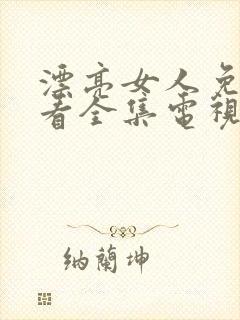 漂亮女人免
看全集電視
納蘭坤